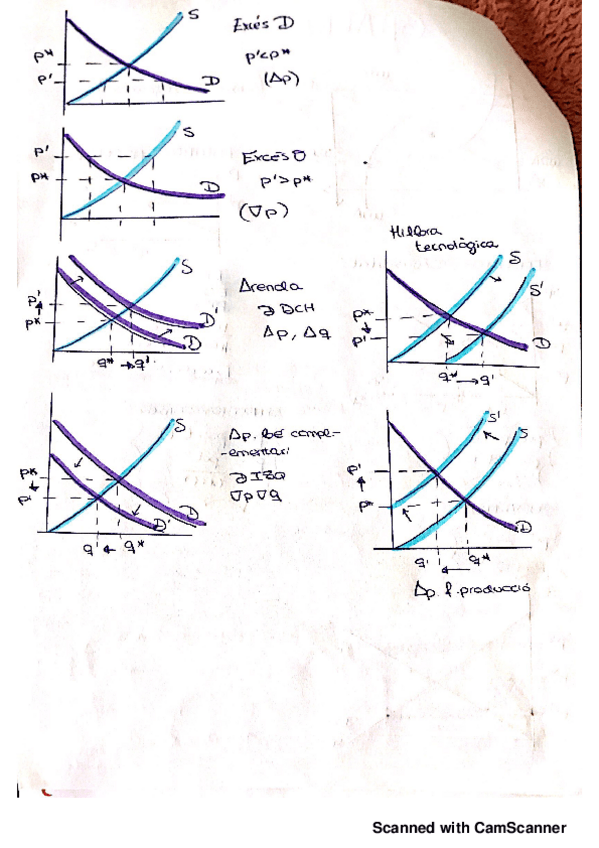 S
Excés D
p*
p'<p*
p'
(Δp)
D
S
p'
Excés O
p*
p'>p*
D
(∇p)
S
p'
p*
D'
D
q* → q'
∂ DCH
Δp, Δq
Millora
tecnològica
S
S'
p*
p'
D
q* → q'
S
p*
p'
D'
D
q' ← q*
Δp. bé compl-
-ementari
∂ IZQ
∇p ∇q
S'
S
p'
p*
D
q' ← q*
Δp. f. producció
Scanned with CamScanner